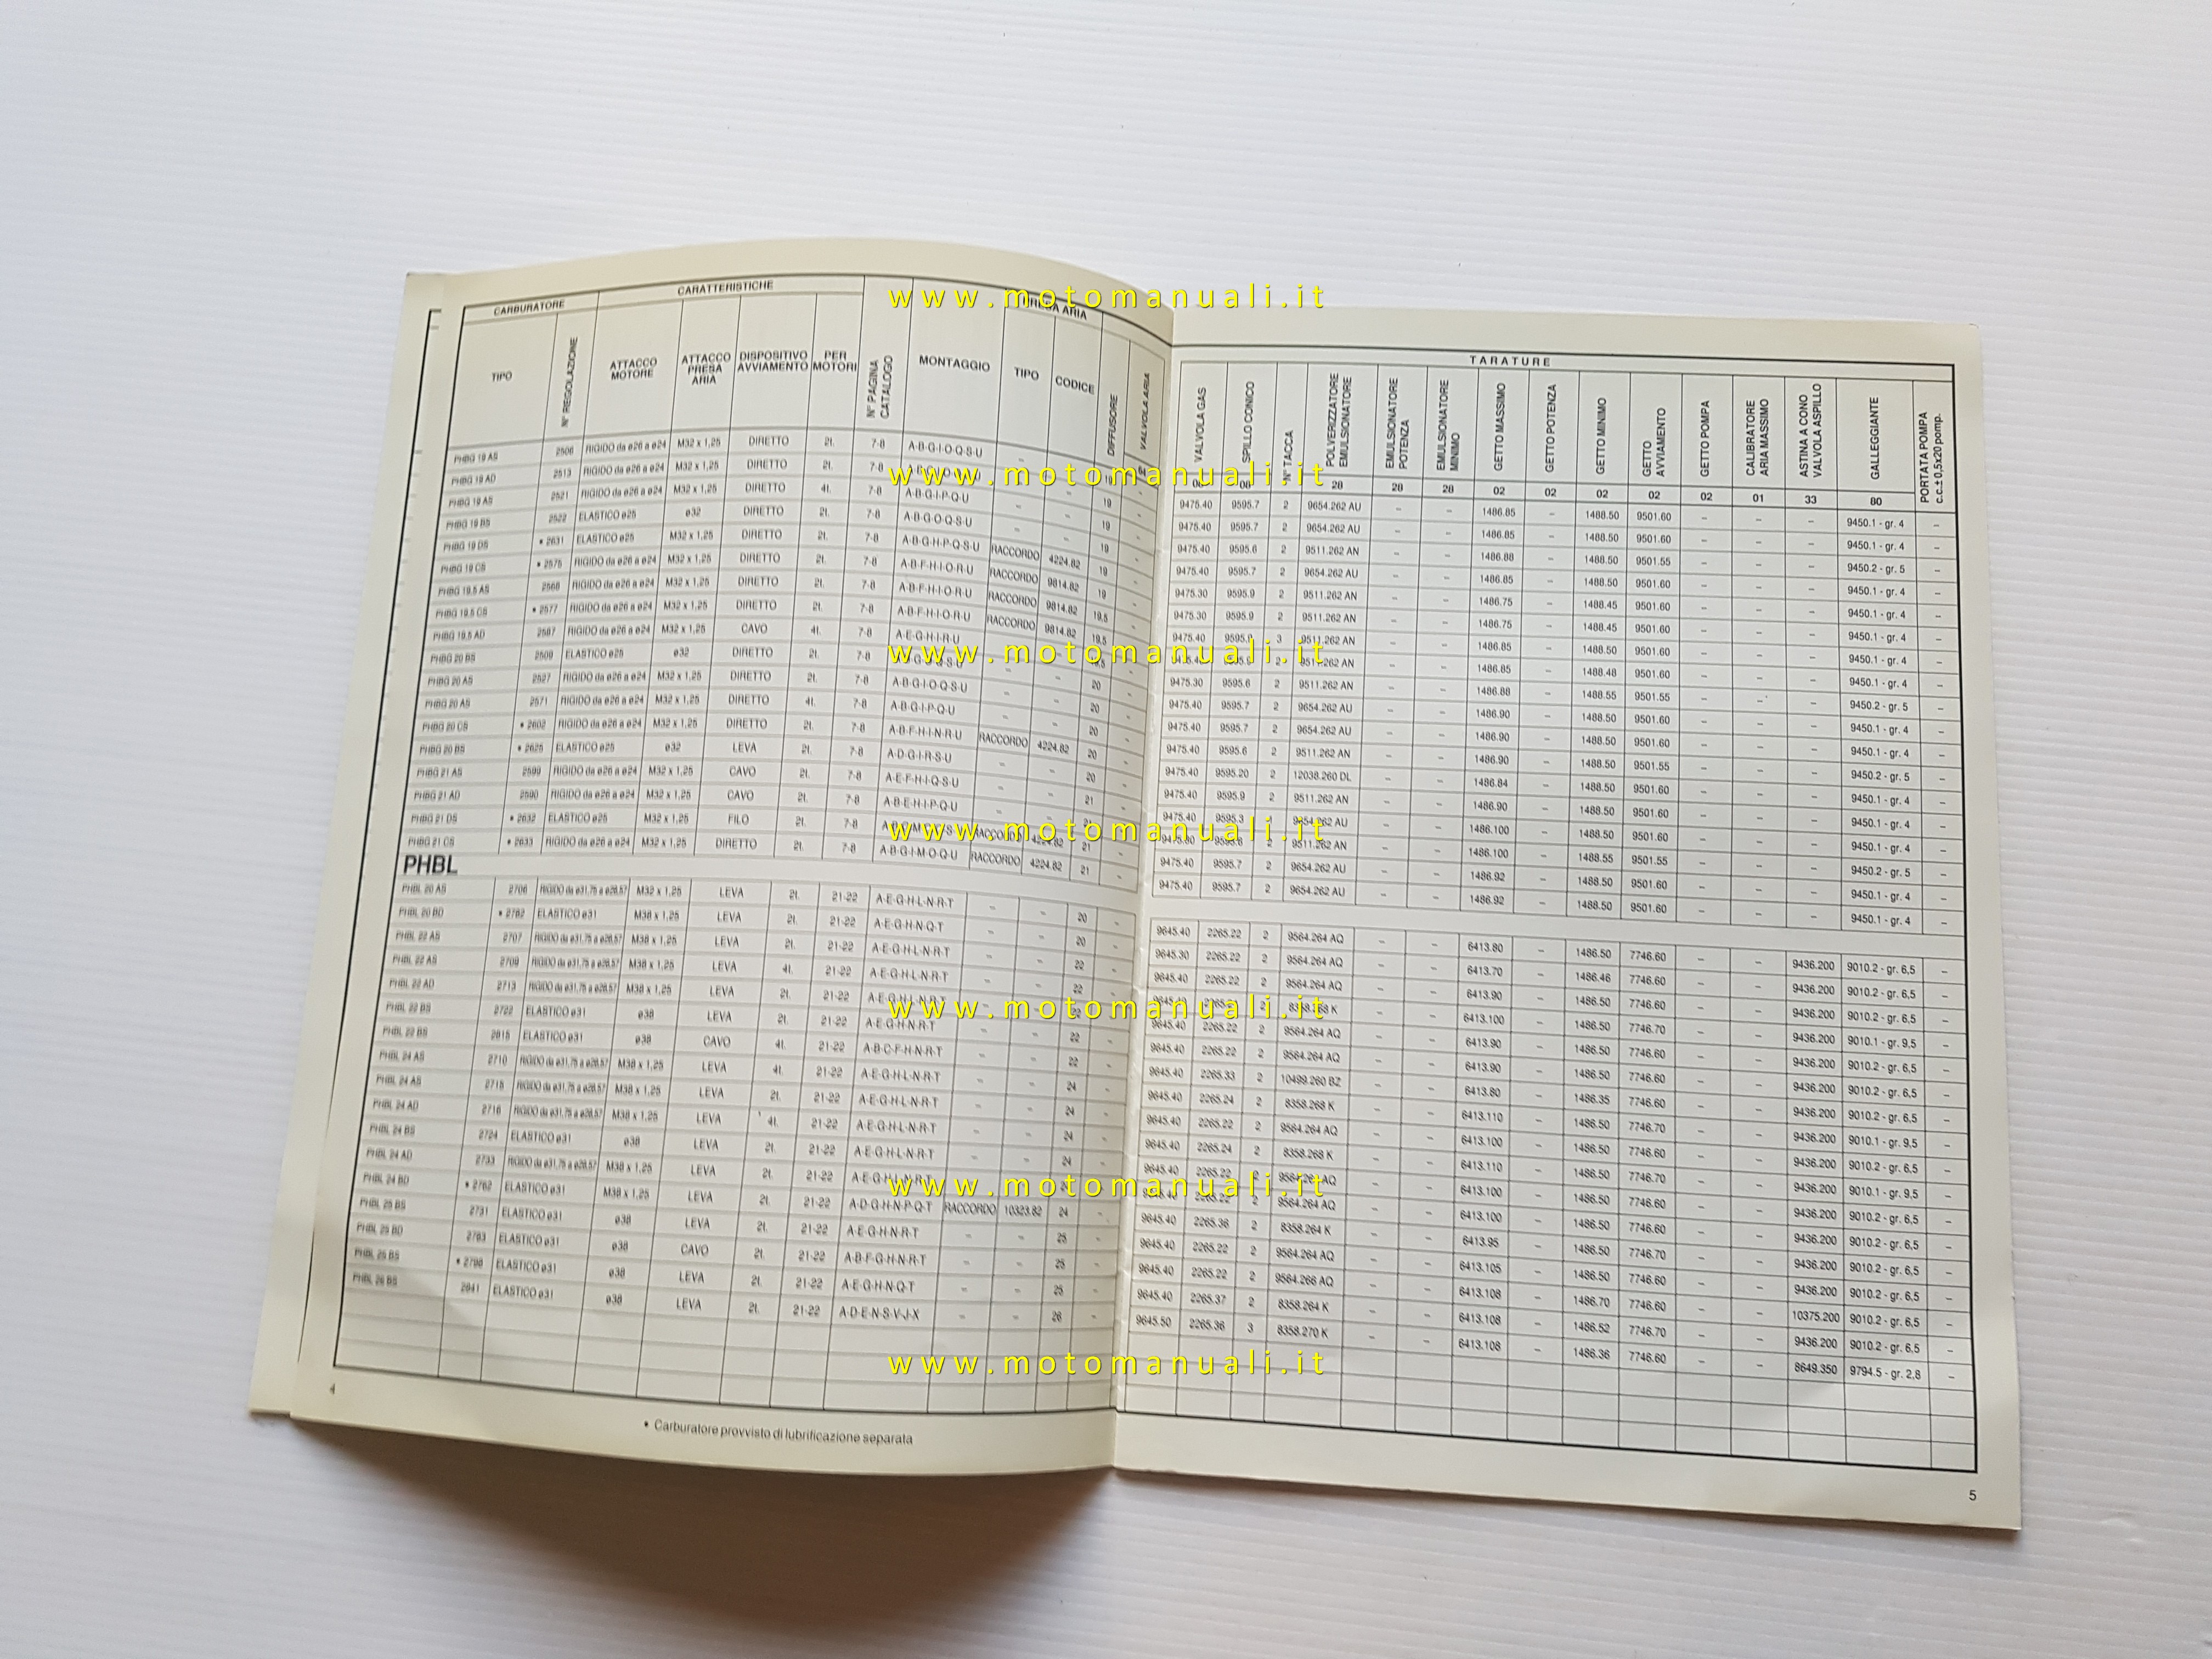 www.motomanuali.it
CARBURATORE CARATTERISTICHE PRESA ARIA
TIPO N° REGOLAZIONE ATTACCO MOTORE ATTACCO PRESA ARIA DISPOSITIVO AVVIAMENTO PER MOTORI N° PAGINA CATALOGO MONTAGGIO TIPO CODICE DIFFUSORE VALVOLA ARIA
PHBG 19 AS 2506 RIGIDO da ø26 a ø24 M32 x 1,25 DIRETTO 2t. 7-8 A-B-G-I-O-Q-S-U
PHBG 19 AD 2513 RIGIDO da ø26 a ø24 M32 x 1,25 DIRETTO 2t. 7-8
www.motomanuali.it
PHBG 19 AS 2521 RIGIDO da ø26 a ø24 M32 x 1,25 DIRETTO 4t. 7-8 A-B-G-I-P-Q-U
PHBG 19 BS 2522 ELASTICO ø25 ø32 DIRETTO 2t. 7-8 A-B-G-O-Q-S-U
PHBG 19 DS • 2631 ELASTICO ø25 M32 x 1,25 DIRETTO 2t. 7-8 A-B-G-H-P-Q-S-U RACCORDO 4224.82 19
PHBG 19 CS • 2575 RIGIDO da ø26 a ø24 M32 x 1,25 DIRETTO 2t. 7-8 A-B-F-H-I-O-R-U RACCORDO 9814.82 19
PHBG 19,5 AS 2568 RIGIDO da ø26 a ø24 M32 x 1,25 DIRETTO 2t. 7-8 A-B-F-H-I-O-R-U RACCORDO 9814.82 19,5
PHBG 19,5 CS • 2577 RIGIDO da ø26 a ø24 M32 x 1,25 DIRETTO 2t. 7-8 RACCORDO 9814.82 19,5
PHBG 19,5 AD 2587 RIGIDO da ø26 a ø24 M32 x 1,25 CAVO 4t. 7-8 A-E-G-H-I-R-U
www.motomanuali.it
PHBG 20 BS 2509 ELASTICO ø25 ø32 DIRETTO 2t. 7-8 20
PHBG 20 AS 2527 RIGIDO da ø26 a ø24 M32 x 1,25 DIRETTO 2t. 7-8 A-B-G-I-O-Q-S-U 20
PHBG 20 AS 2571 RIGIDO da ø26 a ø24 M32 x 1,25 DIRETTO 4t. 7-8 A-B-G-I-P-Q-U 20
PHBG 20 CS • 2602 RIGIDO da ø26 a ø24 M32 x 1,25 DIRETTO 2t. 7-8 A-B-F-H-I-N-R-U RACCORDO 4224.82 20
PHBG 20 BS • 2625 ELASTICO ø25 ø32 LEVA 2t. 7-8 A-D-G-I-R-S-U 20
PHBG 21 AS 2599 RIGIDO da ø26 a ø24 M32 x 1,25 CAVO 2t. 7-8 A-E-F-H-I-Q-S-U 21
PHBG 21 AD 2590 RIGIDO da ø26 a ø24 M32 x 1,25 CAVO 2t. 7-8 A-B-E-H-I-P-Q-U 21
PHBG 21 DS • 2632 ELASTICO ø25 M32 x 1,25 FILO 2t. 7-8 RACCORDO 4224.82 21
www.motomanuali.it
PHBG 21 CS • 2633 RIGIDO da ø26 a ø24 M32 x 1,25 DIRETTO 2t. 7-8 A-B-G-I-M-O-Q-U RACCORDO 4224.82 21 -
PHBL
PHBL 20 AS 2706 RIGIDO da ø31,75 a ø28,57 M32 x 1,25 LEVA 2t. 21-22 A-E-G-H-L-N-R-T - - 20 -
PHBL 20 BD • 2782 ELASTICO ø31 M38 x 1,25 LEVA 2t. 21-22 A-E-G-H-N-Q-T - - 20 -
PHBL 22 AS 2707 RIGIDO da ø31,75 a ø28,57 M38 x 1,25 LEVA 2t. 21-22 A-E-G-H-L-N-R-T - - 22 -
PHBL 22 AS 2709 RIGIDO da ø31,75 a ø28,57 M38 x 1,25 LEVA 4t. 21-22 A-E-G-H-L-N-R-T - - 22 -
PHBL 22 AD 2713 RIGIDO da ø31,75 a ø28,57 M38 x 1,25 LEVA 2t. 21-22 A-E-G-H-L-N-R-T
www.motomanuali.it
PHBL 22 BS 2722 ELASTICO ø31 ø38 LEVA 2t. 21-22 A-E-G-H-N-R-T - - 22 -
PHBL 22 BS 2815 ELASTICO ø31 ø38 CAVO 4t. 21-22 A-B-C-F-H-N-R-T - - 22 -
PHBL 24 AS 2710 RIGIDO da ø31,75 a ø28,57 M38 x 1,25 LEVA 4t. 21-22 A-E-G-H-L-N-R-T - - 24 -
PHBL 24 AS 2715 RIGIDO da ø31,75 a ø28,57 M38 x 1,25 LEVA 2t. 21-22 A-E-G-H-L-N-R-T - - 24 -
PHBL 24 AD 2716 RIGIDO da ø31,75 a ø28,57 M38 x 1,25 LEVA 4t. 21-22 A-E-G-H-L-N-R-T - - 24 -
PHBL 24 BS 2724 ELASTICO ø31 ø38 LEVA 2t. 21-22 A-E-G-H-L-N-R-T - - 24 -
PHBL 24 AD 2733 RIGIDO da ø31,75 a ø28,57 M38 x 1,25 LEVA 2t. 21-22
www.motomanuali.it
PHBL 24 BD • 2762 ELASTICO ø31 M38 x 1,25 LEVA 2t. 21-22 A-D-G-H-N-P-Q-T RACCORDO 10323.82 24 -
PHBL 25 BS 2731 ELASTICO ø31 ø38 LEVA 2t. 21-22 A-E-G-H-N-R-T - - 25 -
PHBL 25 BD 2783 ELASTICO ø31 ø38 CAVO 2t. 21-22 A-B-F-G-H-N-R-T - - 25 -
PHBL 25 BS • 2798 ELASTICO ø31 ø38 LEVA 2t. 21-22 A-E-G-H-N-Q-T - - 25 -
PHBL 26 BS 2841 ELASTICO ø31 ø38 LEVA 2t. 21-22 A-D-E-N-S-V-J-X - - 26 -
www.motomanuali.it
4
• Carburatore provvisto di lubrificazione separata
TARATURE
VALVOLA GAS SPILLO CONICO N° TACCA POLVERIZZATORE EMULSIONATORE EMULSIONATORE POTENZA EMULSIONATORE MINIMO GETTO MASSIMO GETTO POTENZA GETTO MINIMO GETTO AVVIAMENTO GETTO POMPA CALIBRATORE ARIA MASSIMO ASTINA A CONO VALVOLA ASPILLO GALLEGGIANTE PORTATA POMPA c.c.± 0,5x20 pomp.
28 28 28 02 02 02 02 02 01 33 80
9475.40 9595.7 2 9654.262 AU - - 1486.85 - 1488.50 9501.60 - - - 9450.1 - gr. 4 -
9475.40 9595.7 2 9654.262 AU - - 1486.85 - 1488.50 9501.60 - - - 9450.1 - gr. 4 -
9475.40 9595.6 2 9511.262 AN - - 1486.88 - 1488.50 9501.55 - - - 9450.2 - gr. 5 -
9475.40 9595.7 2 9654.262 AU - - 1486.85 - 1488.50 9501.60 - - - 9450.1 - gr. 4 -
9475.30 9595.9 2 9511.262 AN - - 1486.75 - 1488.45 9501.60 - - - 9450.1 - gr. 4 -
9475.30 9595.9 2 9511.262 AN - - 1486.75 - 1488.45 9501.60 - - - 9450.1 - gr. 4 -
9475.40 9595.9 3 9511.262 AN - - 1486.85 - 1488.50 9501.60 - - - 9450.1 - gr. 4 -
1486.85 - 1488.48 9501.60 - - - 9450.1 - gr. 4 -
9475.30 9595.6 2 9511.262 AN - - 1486.88 - 1488.55 9501.55 - - - 9450.2 - gr. 5 -
9475.40 9595.7 2 9654.262 AU - - 1486.90 - 1488.50 9501.60 - - - 9450.1 - gr. 4 -
9475.40 9595.7 2 9654.262 AU - - 1486.90 - 1488.50 9501.60 - - - 9450.1 - gr. 4 -
9475.40 9595.6 2 9511.262 AN - - 1486.90 - 1488.50 9501.55 - - - 9450.2 - gr. 5 -
9475.40 9595.20 2 12038.260 DL - - 1486.84 - 1488.50 9501.60 - - - 9450.1 - gr. 4 -
9475.40 9595.9 2 9511.262 AN - - 1486.90 - 1488.50 9501.60 - - - 9450.1 - gr. 4 -
9475.40 9595.3 9654.262 AU - - 1486.100 - 1488.50 9501.60 - - - 9450.1 - gr. 4 -
2 9511.262 AN - - 1486.100 - 1488.55 9501.55 - - - 9450.2 - gr. 5 -
9475.40 9595.7 2 9654.262 AU - - 1486.92 - 1488.50 9501.60 - - - 9450.1 - gr. 4 -
9475.40 9595.7 2 9654.262 AU - - 1486.92 - 1488.50 9501.60 - - - 9450.1 - gr. 4 -
9645.40 2265.22 2 9564.264 AQ - - 6413.80 - 1486.50 7746.60 - - 9436.200 9010.2 - gr. 6,5 -
9645.30 2265.22 2 9564.264 AQ - - 6413.70 - 1486.46 7746.60 - - 9436.200 9010.2 - gr. 6,5 -
9645.40 2265.22 2 9564.264 AQ - - 6413.90 - 1486.50 7746.60 - - 9436.200 9010.2 - gr. 6,5 -
8358.268 K - - 6413.100 - 1486.50 7746.70 - - 9436.200 9010.1 - gr. 9,5 -
9645.40 2265.22 2 9564.264 AQ - - 6413.90 - 1486.50 7746.60 - - 9436.200 9010.2 - gr. 6,5 -
9645.40 2265.22 2 9564.264 AQ - - 6413.90 - 1486.50 7746.60 - - 9436.200 9010.2 - gr. 6,5 -
9645.40 2265.33 2 10499.260 BZ - - 6413.80 - 1486.35 7746.60 - - 9436.200 9010.2 - gr. 6,5 -
9645.40 2265.24 2 8358.268 K - - 6413.110 - 1486.50 7746.70 - - 9436.200 9010.1 - gr. 9,5 -
9645.40 2265.22 2 9564.264 AQ - - 6413.100 - 1486.50 7746.60 - - 9436.200 9010.2 - gr. 6,5 -
9645.40 2265.24 2 8358.268 K - - 6413.110 - 1486.50 7746.70 - - 9436.200 9010.1 - gr. 9,5 -
9645.40 2265.22 2 9564.264 AQ - - 6413.100 - 1486.50 7746.60 - - 9436.200 9010.2 - gr. 6,5 -
2 9564.264 AQ - - 6413.100 - 1486.50 7746.60 - - 9436.200 9010.2 - gr. 6,5 -
9645.40 2265.36 2 8358.264 K - - 6413.95 - 1486.50 7746.70 - - 9436.200 9010.2 - gr. 6,5 -
9645.40 2265.22 2 9564.264 AQ - - 6413.105 - 1486.50 7746.60 - - 9436.200 9010.2 - gr. 6,5 -
9645.40 2265.22 2 9564.266 AQ - - 6413.108 - 1486.70 7746.60 - - 10375.200 9010.2 - gr. 6,5 -
9645.40 2265.37 2 8358.264 K - - 6413.108 - 1486.52 7746.70 - - 9436.200 9010.2 - gr. 6,5 -
9645.50 2265.36 3 8358.270 K - - 6413.108 - 1486.36 7746.60 - - 8649.350 9794.5 - gr. 2,8 -
5